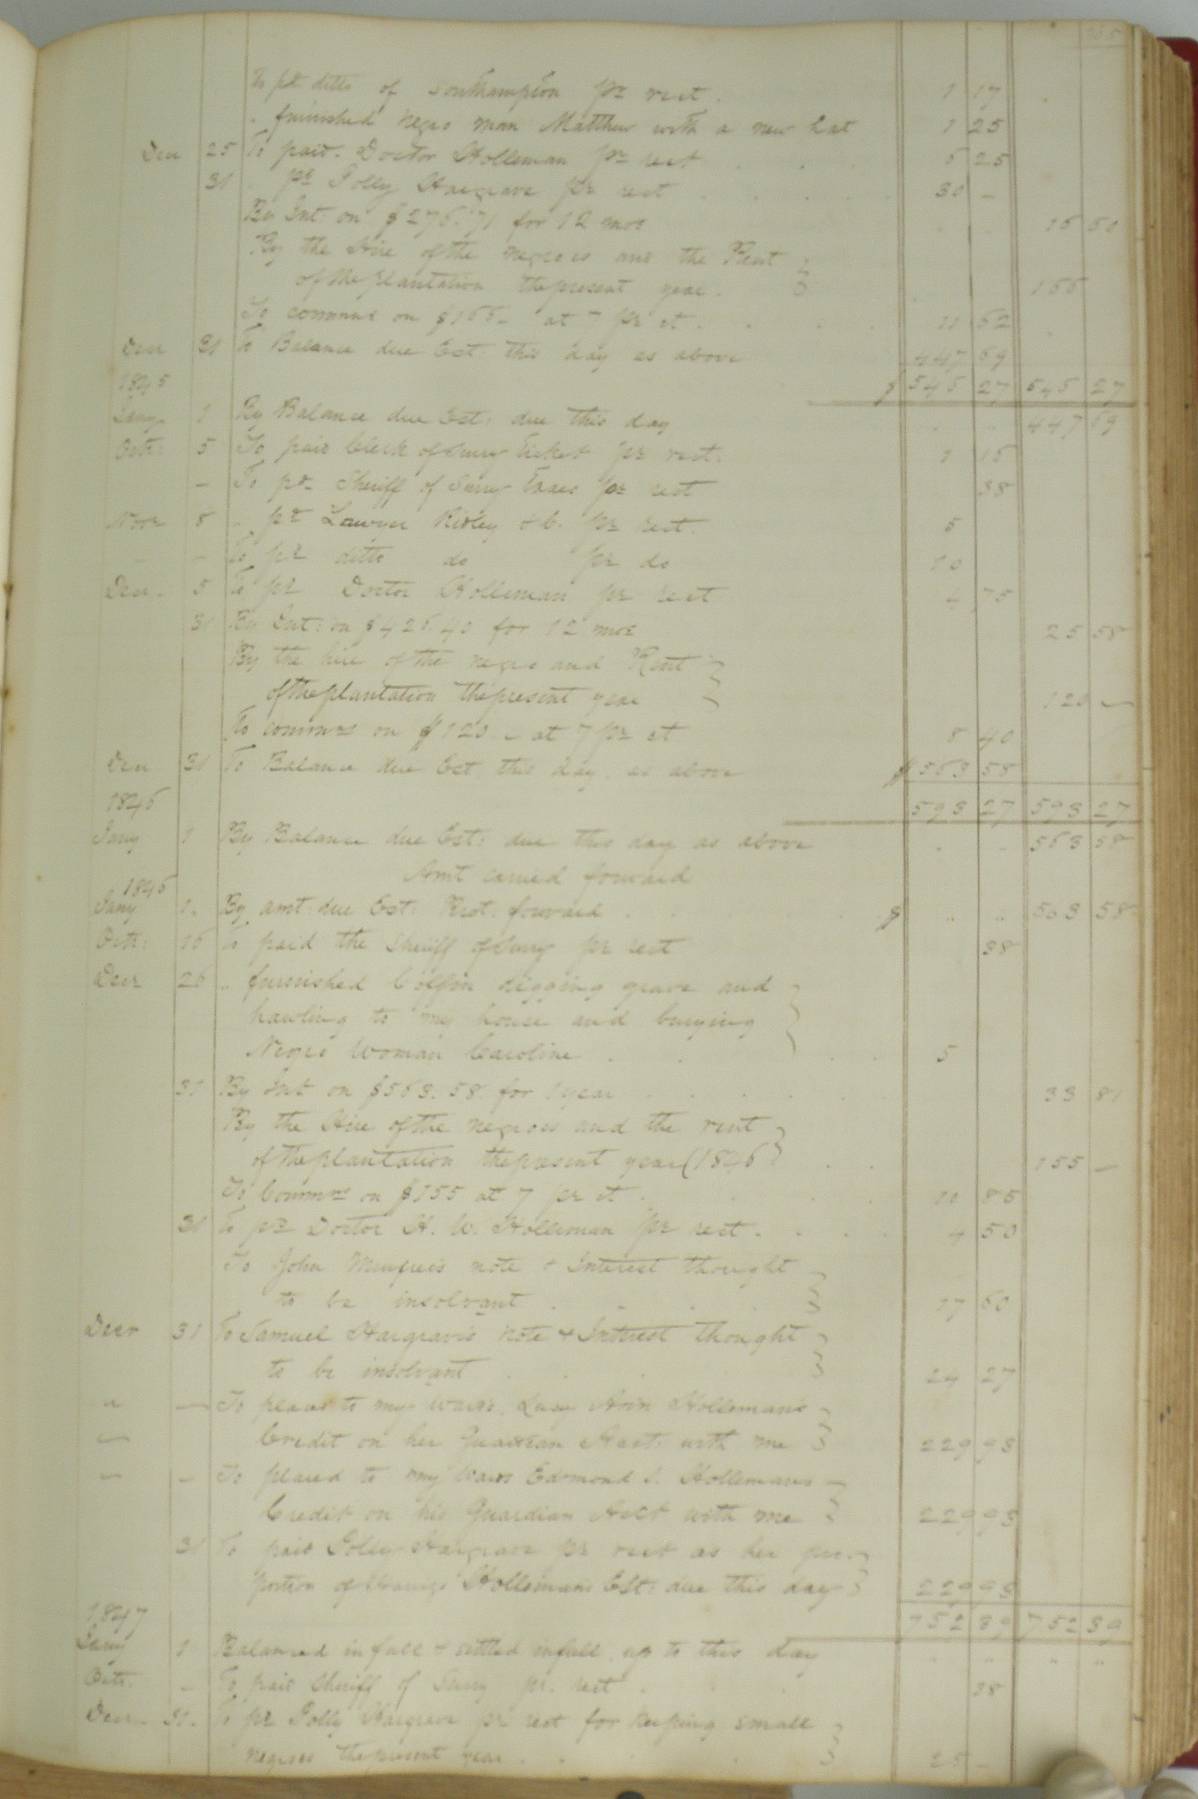 365
To pd ditto of Southampton pr rect. 1 17
" furnished negro man Matthew with a new hat 1 25
Decr 25 To paid Doctor Holleman pr rect 6 25
31 " pd Polly Hargrave pr rect 30 –
By Int: on $276.71 for 12 mos 16 60
By the Hire of the negroes and the Rent
of the plantation the present year. 166
To comms on $166– at 7 pr ct. 11 62
Decr 31 To Balance due Est: this day as above 447 69
1845 $ 545 27 545 27
Jany 1 By Balance due Est: due this day 447 69
Octr: 5 To paid Clerk of Surry Ticket pr rect. 1 15
– To pd Sheriff of Surry Taxes pr rect 38
Novr 8 " pd Lawyer Ridley &c. pr rect. 5
– – To pd ditto do pr do 10
Decr. 5 To pd Doctor Holleman pr rect 4 75
31 By Int: on $426.40 for 12 mos 25 58
By the hire of the negro and Rent
of the plantation the present year 120 –
To comms on $120. – at 7 pr ct 8 40
Decr 31 To Balance due Est. this day as above $ 563 58
1846 593 27 593 27
Jany 1 By Balance due Est: due this day as above 563 58
Amt carried forward
1846
Jany 1. By amt: due Est: Brot. forward $ " " 563 58
Octr: 16 To paid the Sheriff of Surry pr rect 38
Decr 26 " furnished Coffin digging grave and
hawling to my house and burying
Negro Woman Caroline 5
31 By Int on $563.58 for 1 year 33 81
By the Hire of the negroes and the rent
of the plantation the present year (1846 155 –
To Comms on $155 at 7 pr ct 10 85
31 To pd Doctor H. W. Holleman pr rect. 4 50
To John Mungree's note & Interest thought
to be insolvant 17 60
Decr 31 To Samuel Hargrave's note & Interest thought
to be insolvant 24 27
" – To placed to my Wards, Lucy Ann Holleman's
" Credit on her Guardian Acct. with me 229 93
" – To placed to my Wards Edmond S. Holleman's
Credit on his Guardian Acct with me 229 93
31 To paid Polly Hargrave pr rect as her pro-
portion of Holleman's Est: due this day 229 93
1847 752 39 752 39
Jany 1 Balanced in full & settled in full up to this day " " " "
Octr. – To paid Sheriff of Surry pr. rect. 38
Decr. 31. To pd Polly Hargrave pr rect for keeping small
negroes the present year. 25 –